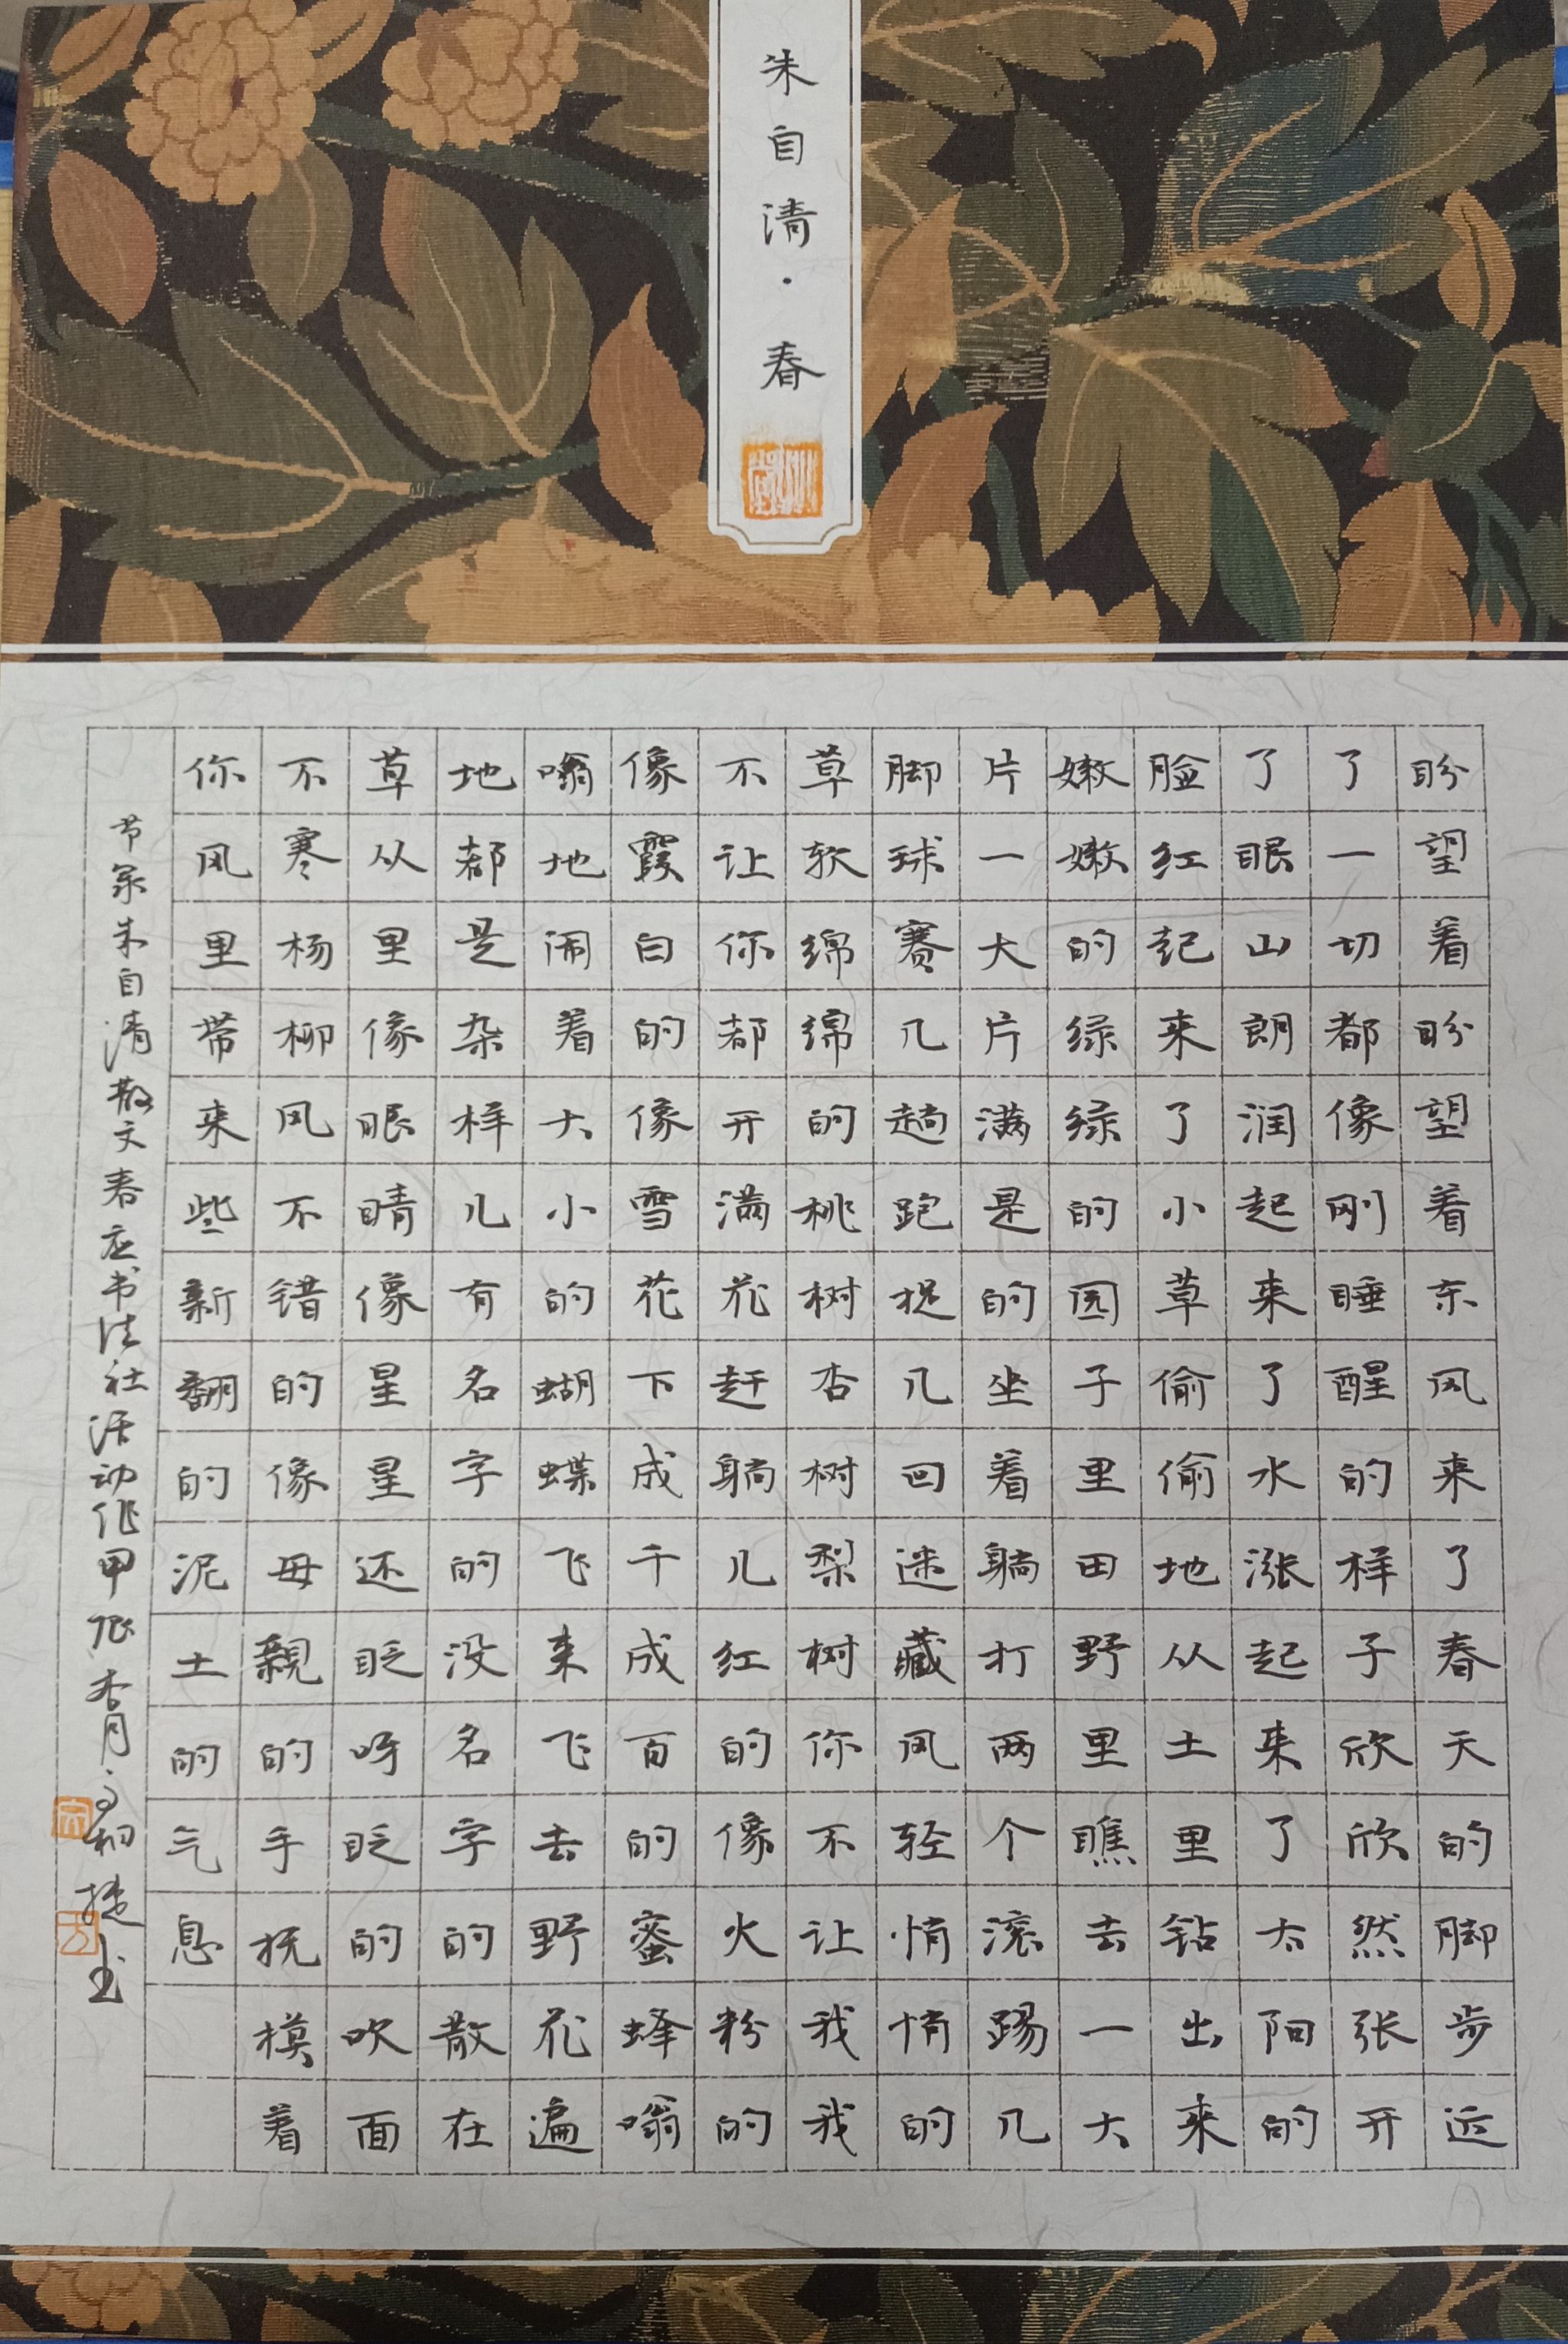 朱自清·春
盼望着盼望着东风来了春天的脚步近
了一切都像刚睡醒的样子欣欣然张开
了眼山朗润起来了水涨起来了太阳的
脸红起来了小草偷偷地从土里钻出来
嫩嫩的绿绿的园子里田野里瞧去一大
片一大片满是的坐着躺打两个滚踢几
脚球赛几趟跑捉几回迷藏风轻悄悄的
草软绵绵的桃树杏树梨树你不让我我
不让你都开满花赶躺儿红的像火粉的
像霞白的像雪花下成千成百的蜜蜂嗡
嗡地闹着大小的蝴蝶飞来飞去野花遍
地都是杂样儿有名字的没名字的散在
草从里像眼睛像星星还眨呀眨的吹面
不寒杨柳风不错的像母親的手抚摸着
你风里带来些新翻的泥土的气息
节录朱自清散文春应书法社活动作甲辰杏月捷书